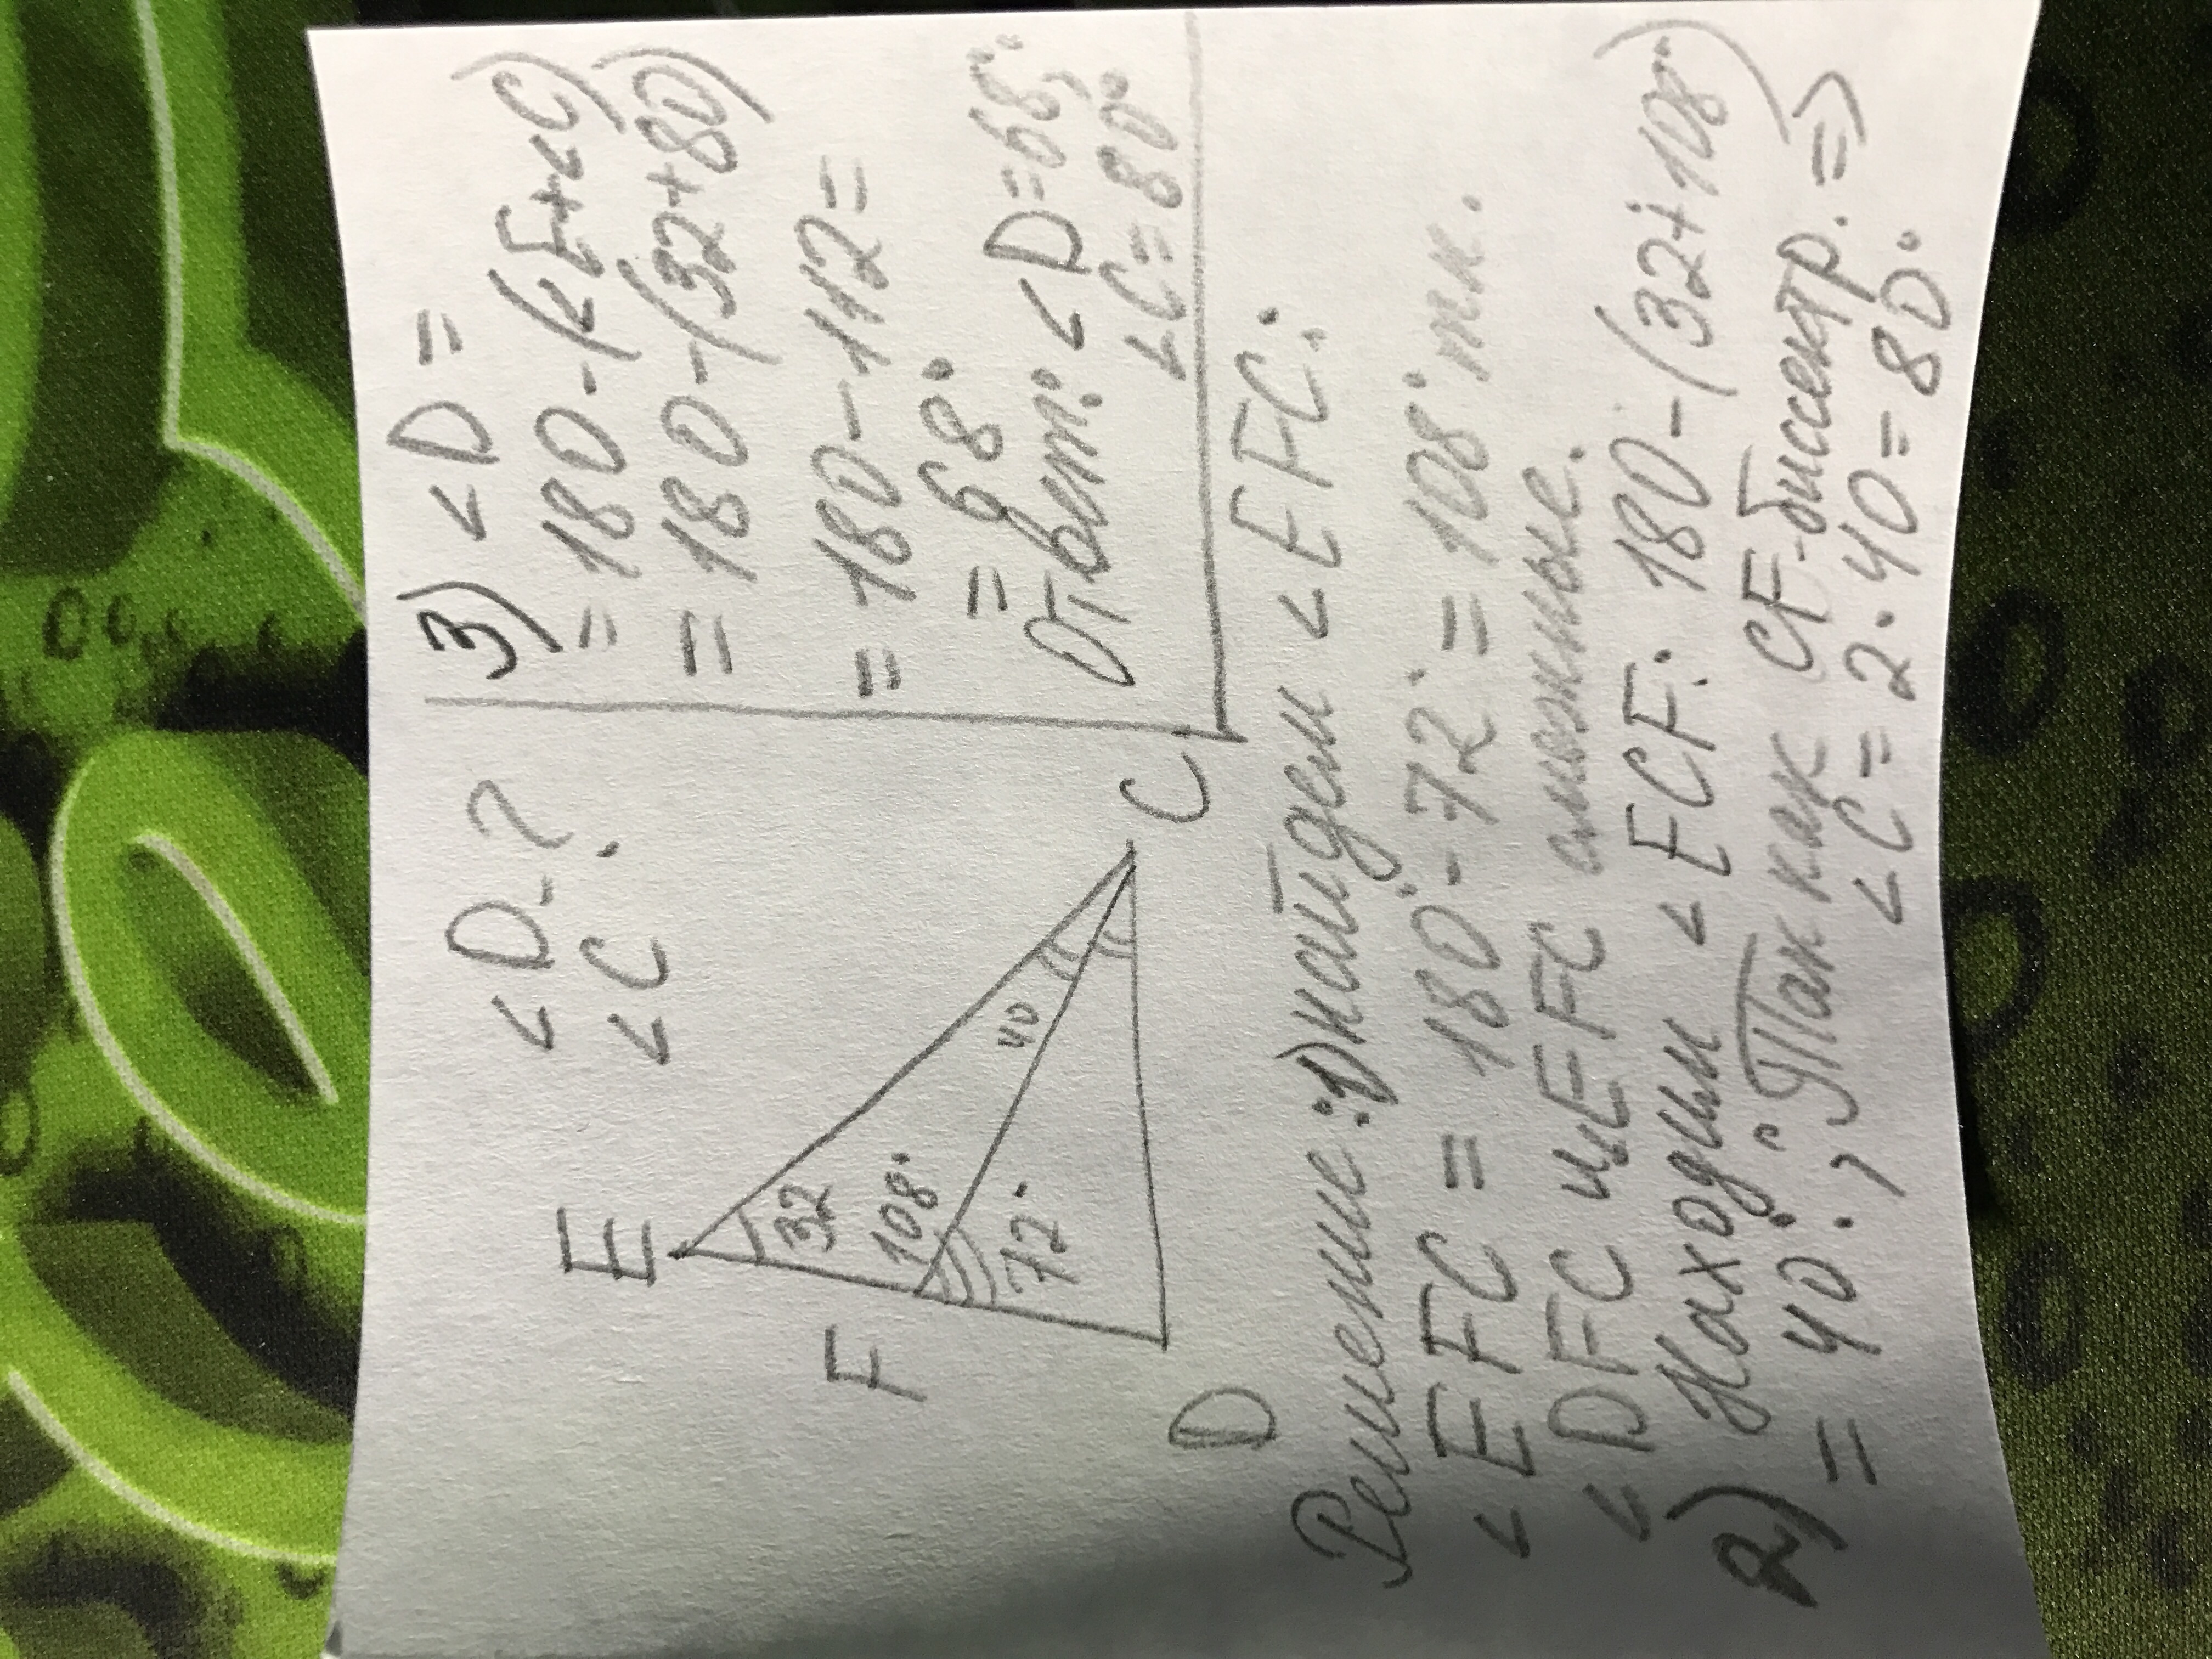 ∠D-?
∠C
E
32
F
108°
40
72°
D
C
3) ∠D =
= 180-(∠E+∠C)
= 180-(32+80)
= 180-112=
= 68°
Ответ: ∠D=68°,
∠C=80°
Решение: 1) найдем ∠EFC:
∠EFC = 180°-72° = 108° т.к.
∠DFC и ∠EFC смежные.
2) Находим ∠ECF: 180-(32+108°)
= 40°., Так как CF-биссектр. =>
∠C = 2·40=80°